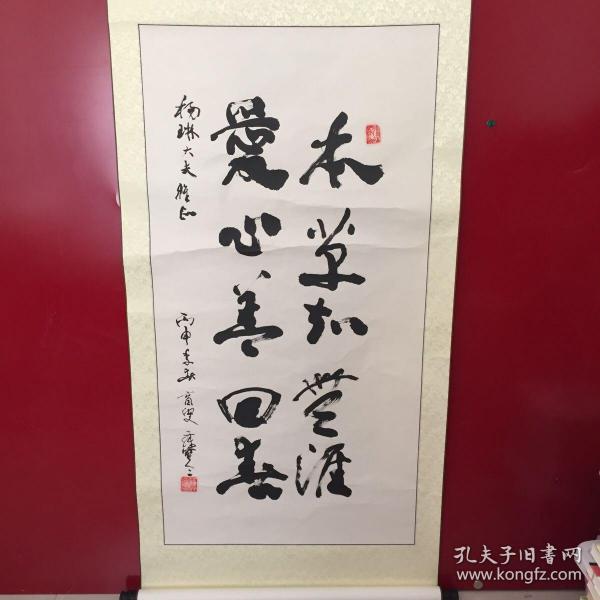 本草知無涯
愛心善回春
杨琳大夫雅正
丙申孟秋
孔夫子旧书网
www.kongfz.com